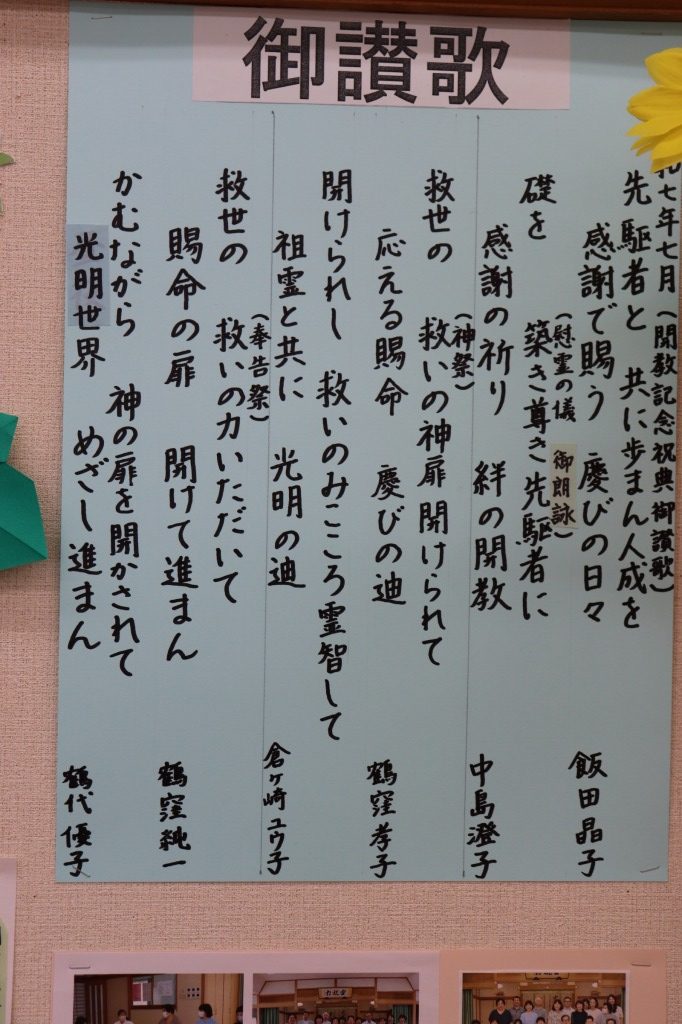 御讃歌
七年七月(開教記念祝典御讃歌)
先駆者と 共に歩まん人成を
感謝で賜う 慶びの日々 飯田晶子
(慰霊の儀 御朗詠)
礎を 築き尊き先駆者に
感謝の祈り 絆の開教 中島澄子
(神祭)
救世の 救いの神扉開けられて
応える賜命 慶びの迪 鶴窪孝子
開けられし 救いのみこころ霊智して
祖霊と共に 光明の迪 倉ヶ崎ユウ子
(奉告祭)
救世の 救いの力いただいて
賜命の扉 開けて進まん 鶴窪純一
かむながら 神の扉を開かされて
光明世界 めざし進まん 鶴代優子